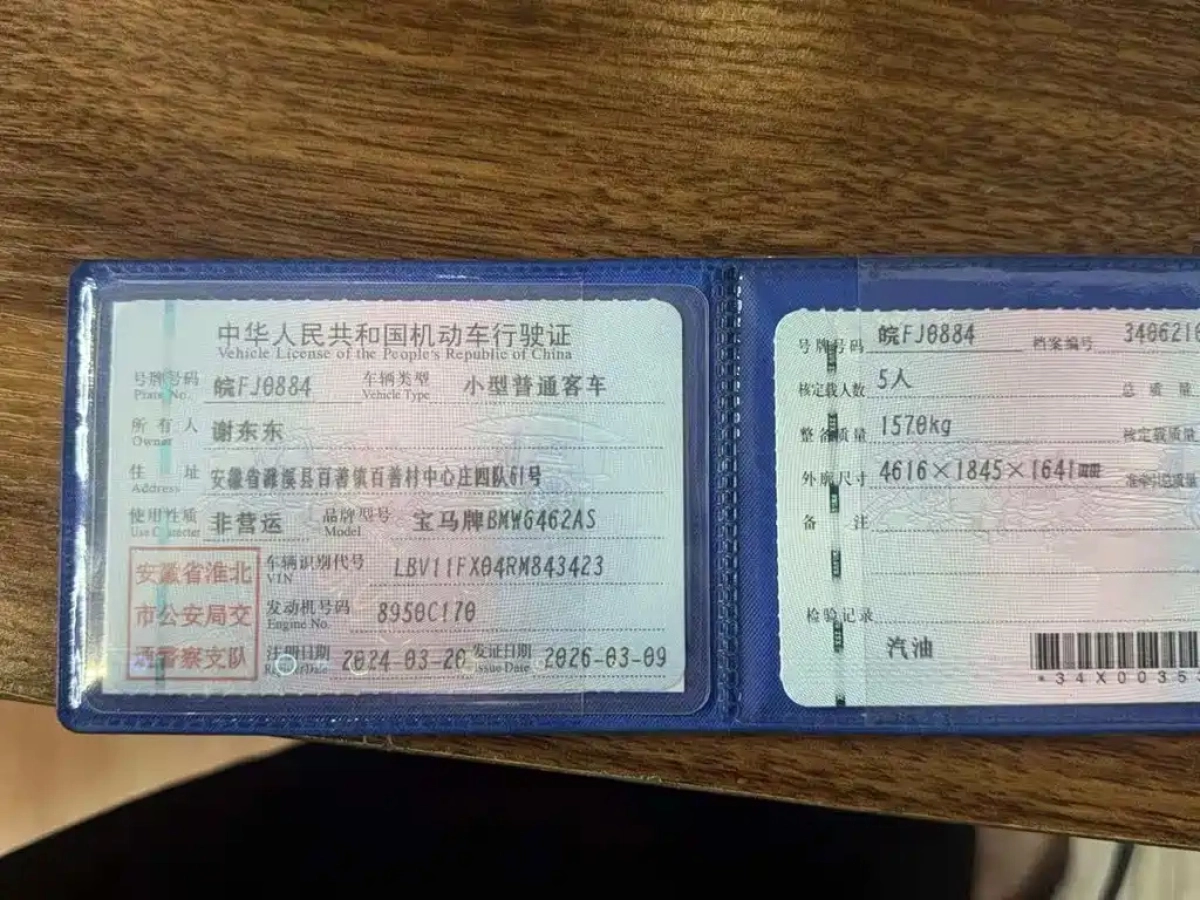 中华人民共和国机动车行驶证
Vehicle License of the People's Republic of China
号牌号码 皖FJ0884 车辆类型 小型普通客车
Plate No. Vehicle Type
所有人 谢东东
Owner
住址 安徽省濉溪县百善镇百善村中心庄四队61号
Address
使用性质 非营运 品牌型号 宝马牌BMW6462AS
Use Character Model
安徽省淮北
市公安局交
通警察支队
车辆识别代号 LBV11FX04RM843423
VIN
发动机号码 8950C170
Engine No.
注册日期 2024-03-20 发证日期 2026-03-09
Register Date Issue Date
号牌号码 皖FJ0884 档案编号 3406210
核定载人数 5人 总质量
整备质量 1570kg 核定载质量
外廓尺寸 4616×1845×1641mm 准牵引总质量
备注
检验记录
汽油
*34X0035